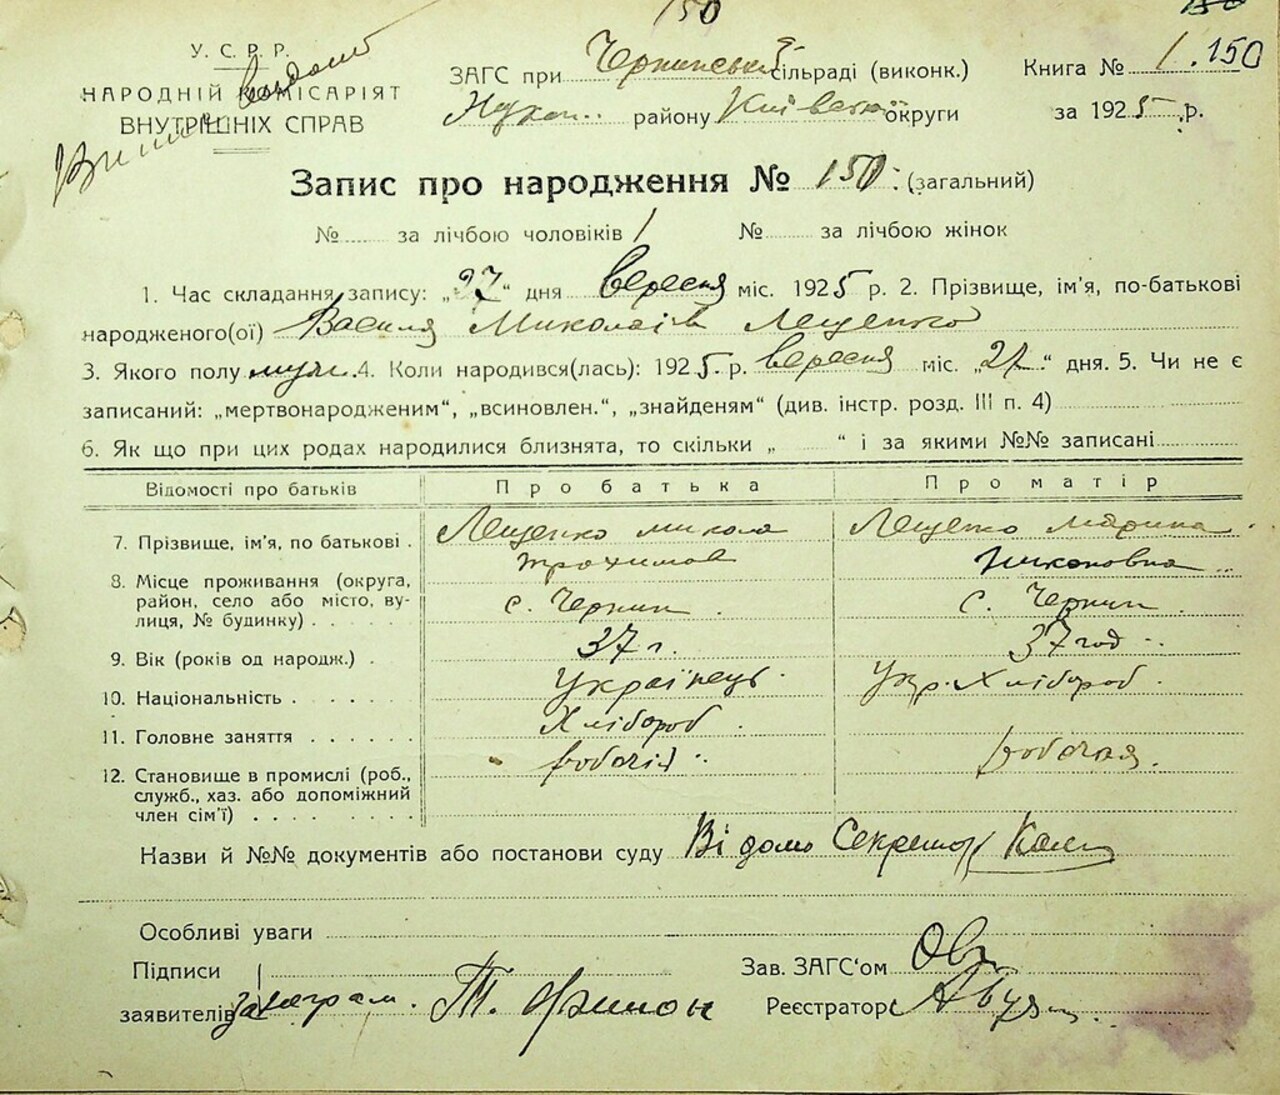 150
У. С. Р. Р.
НАРОДНІЙ КОМІСАРІЯТ
ВНУТРІШНІХ СПРАВ
ЗАГС при Чернинській сільраді (виконк.)
району Київської округи
Книга № 1. 150
за 1925 р.
Запис про народження № 150 (загальний)
№ за лічбою чоловіків 1 № за лічбою жінок
1. Час складання запису: „27“ дня вересня міс. 1925 р. 2. Прізвище, ім'я, по-батькові
народженого(ої) Василя Миколаїв Лещенко
3. Якого полу муж. 4. Коли народився(лась): 1925 р. вересня міс. „21“ дня. 5. Чи не є
записаний: „мертвонародженим“, „всиновлен.“, „знайденям“ (див. інстр. розд. III п. 4)
6. Як що при цих родах народилися близнята, то скільки „ “ і за якими №№ записані
Відомості про батьків
Про батька
Про матір
7. Прізвище, ім'я, по батькові .
Лещенко Микола
Трохимов
Лещенко Марина
Никоновна
8. Місце проживання (округа,
район, село або місто, ву-
лиця, № будинку) . .
с. Чернин .
с. Чернин .
9. Вік (років од народж.) .
37 г.
37 год
10. Національність . . . . .
Українець
Укр. Хлібороб .
11. Головне заняття . . . . . .
Хлібороб .
12. Становище в промислі (роб.,
служб., хаз. або допоміжний
член сім'ї) . . . . . . .
робочія
робочая.
Назви й №№ документів або постанови суду Відомо Секретар
Особливі уваги
Підписи
заявителів
Зав. ЗАГС'ом
Реєстратор